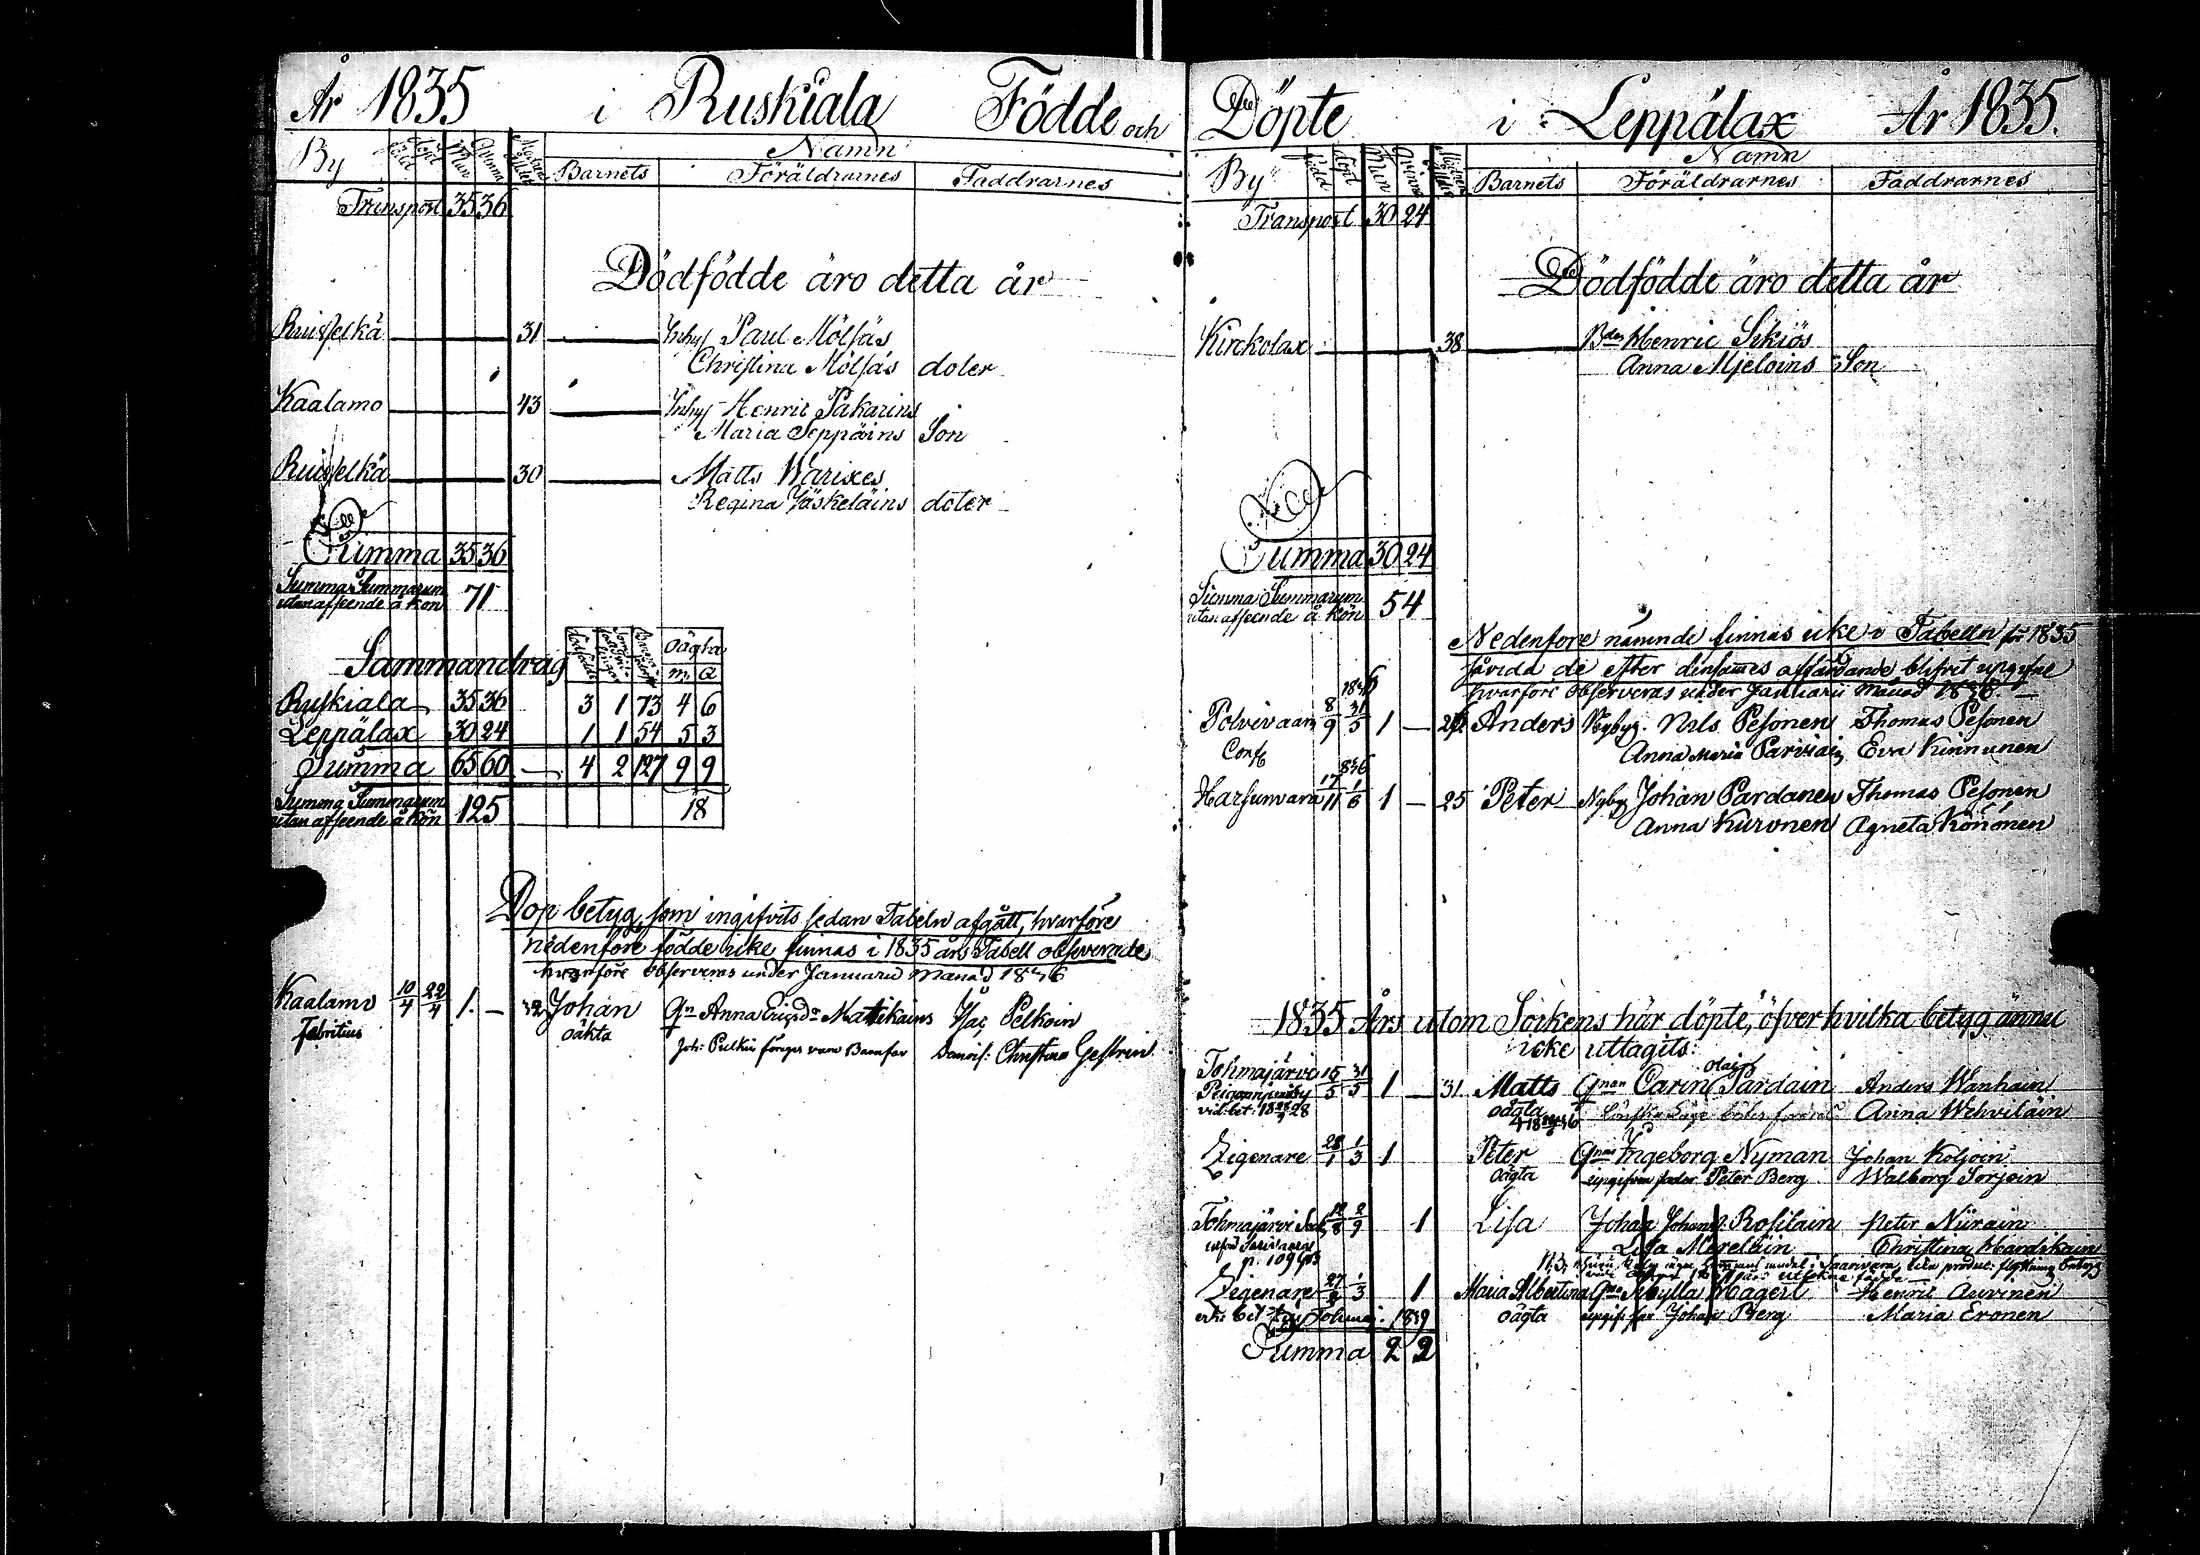 År 1835 i Ruskiala Födde och
By Född Döpt Man Qvinna Namn
Barnets Föräldrarnes Faddrarnes
Transport 35 36
Dödfödde äro detta år
Ruisselkä 31 Inhys Paul Mölsäs
Christina Mölsäs doter
Kaalamo 43 Inhys Henric Pakarins
Maria Seppäins Son
Ruisselkä 30 Matts Warixes
Regina Jäskeläins doter
Summa 35 36
Summa Summarum
utan afseende å kön 71
Sammandrag oägta
m q
Ruskiala 35 36 3 1 73 4 6
Leppälax 30 24 1 1 54 5 3
Summa 65 60 4 2 127 9 9
Summa Summarum
utan afseende å kön 125 18
Dop betyg, som ingifvits sedan Tabeln afgått, hvarföre
nedenföre födde icke finnas i 1835 års Tabell observerade
hvarföre observeras under Januarii Månad 1836
Kaalamo 10/4 22/4 1. – 32 Johan Qn Anna Ericsdr Matikains Isac Pelkoin
Fabritius oäkta Joh: Barnfar Christina Gestrin
Döpte i Leppälax År 1835.
By Född Döpt Mån Qvinna Namn
Barnets Föräldrarnes Faddrarnes
Transport 30 24
Dödfödde äro detta år
Kirckolax 38 Bdn Henric Sikiös
Anna Mjeloins Son
Summa 30 24
Summa Summarum
utan afseende å kön 54
Nedenföre nämnde finnas icke i Tabelln för 1835
såvida de efter densammes affärdande blifvit upgifne
hvarföre observeras under Januarii månad 1836. –
Polvivaara 8/9 31/5 1 – Anders Nybyg. Nils Pesonen Thomas Pesonen
Anna Maria Parviain Eva Kinnunen
1836
Harsunvara 17/11 1/6 1 – 25 Peter Nybyg Johan Pardanen Thomas Pesonen
Anna Kuronen Agneta Könönen
1835 Års utom Sockens här döpte, öfver hvilka betyg ännu
icke uttagits:
Tohmajärvi 15/5 31/5 1 – 31 Matts Qnan Carin Olaisdr Pardain Anders Wanhain
oägta Anna Wehviläin
Zigenare 28/1 1/3 1 Peter Qnan Ingeborg Nyman Johan Koljoin
oägta upgifven fader Peter Berg Walborg Sorjoin
Tohmajärvi 12/8 2/9 1 Lisa Johan Johans. Rosilain Peter Niirain
p. 109 Lisa Mereläin Christina Handikain
Zigenare 1/3 1 Maria Albertina Qnan Mylla Hagert Henric Auvinen
1839 oägta upgif. far Johan Berg Maria Eronen
Summa 2 2